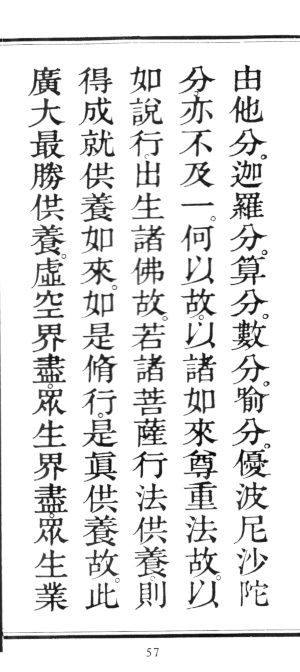 由他分。迦羅分。算分。數分。喻分。優波尼沙陀
分。亦不及一。何以故。以諸如來尊重法故。以
如說行。出生諸佛故。若諸菩薩行法供養。則
得成就供養如來。如是脩行。是眞供養故。此
廣大最勝供養。虛空界盡。眾生界盡。眾生業
57